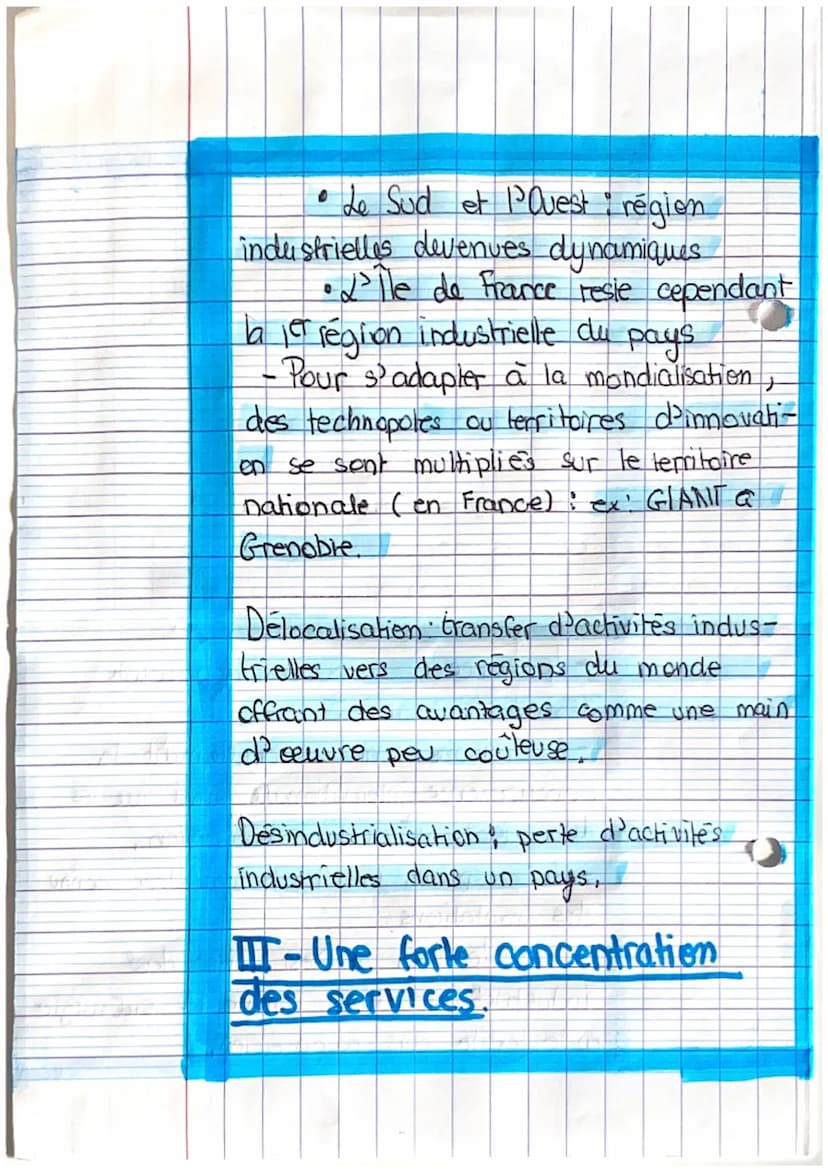 • Le Sud et l'Ouest : région
industrielles devenues dynamiques
• L'Île de France reste cependant
la 1er région industrielle du pays
- Pour s'adapter à la mondialisation,
des technopoles ou territoires d'innovati-
on se sont multipliés sur le territoire
nationale (en France) : ex: GIANT à
Grenoble.
Délocalisation : transfer d'activités indus-
trielles vers des régions du monde
offrant des avantages comme une main
d'œuvre peu coûteuse.
Désindustrialisation : perte d'activités
industrielles dans un pays.
III - Une forte concentration
des services.